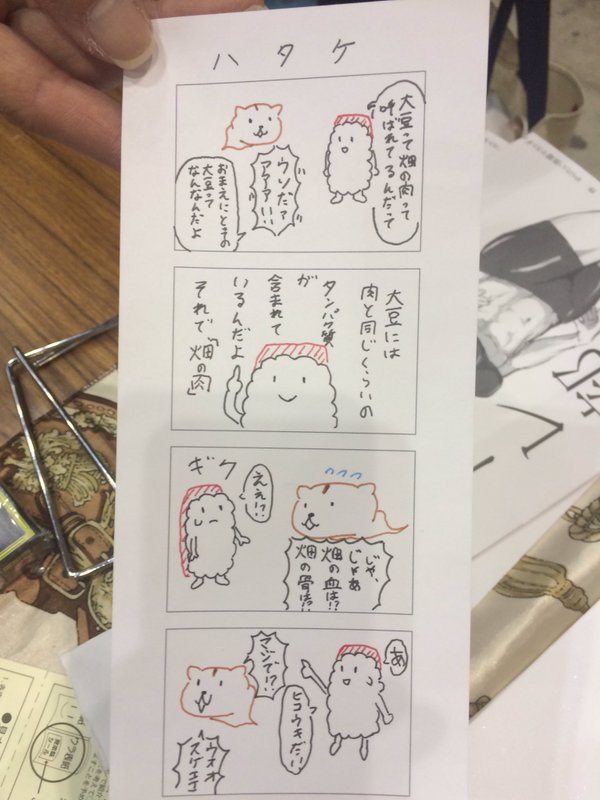 ハタケ
大豆って畑の肉って
呼ばれてるんだって
ウソだァ
おまえにとっての
大豆って
なんなんだよ
大豆には
肉と同じくらいの
タンパク質
が
含まれて
いるんだよ
それで「畑の肉」
じゃ、
じゃあ
畑の血は!?
畑の骨は!?
ええ!?
ギク
あ
ヒコウキだ!!
マジで!?
ウオオ
スゲエエ